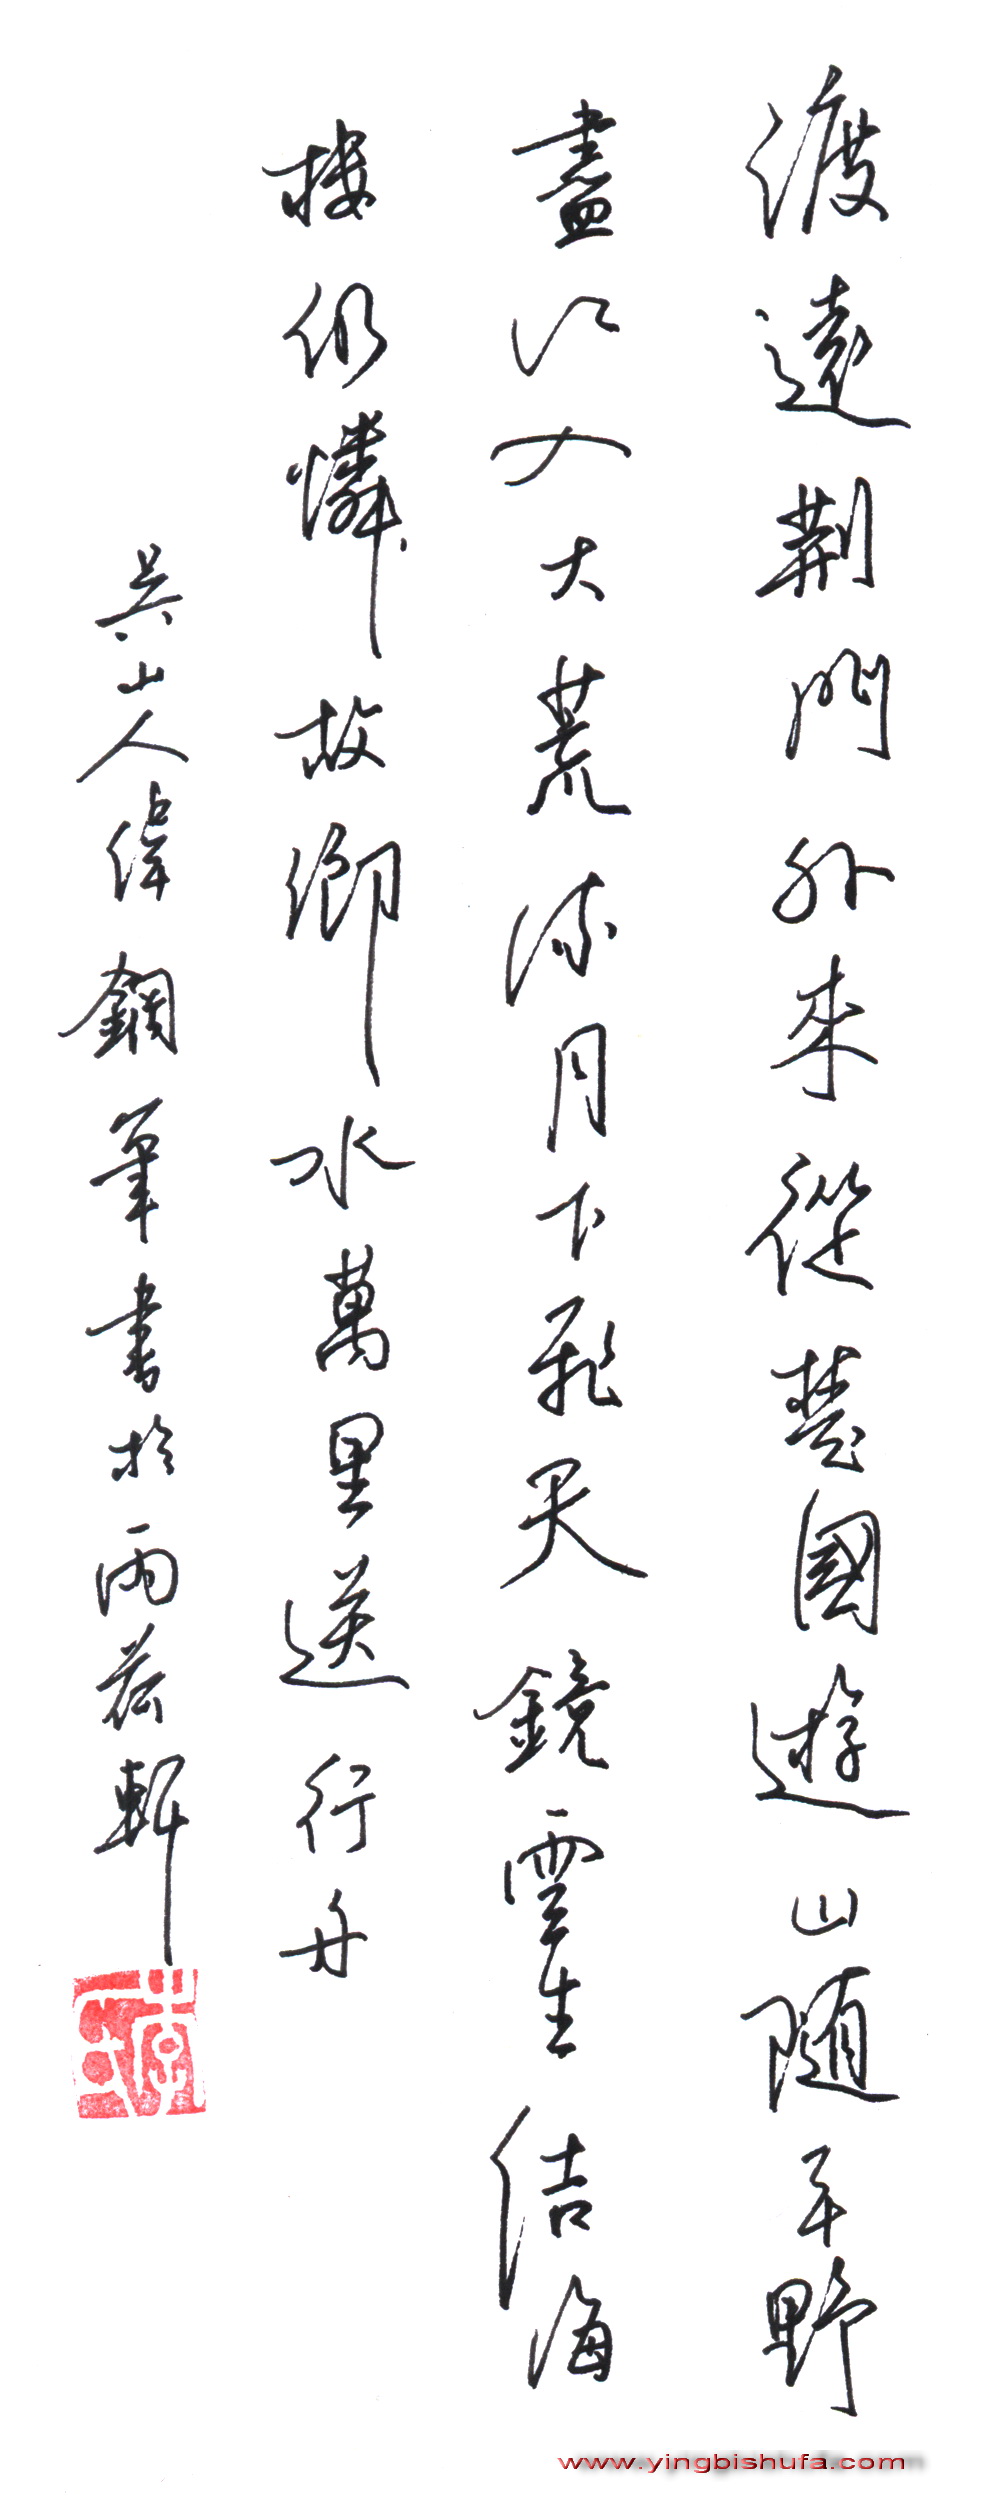 渡遠荆門外来從楚國遊山随平野
盡江入大荒流月下飛天鏡雲生結海
楼仍憐故鄉水萬里送行舟
吴山人偉鋼筆書於雨軒
www.yingbishufa.com